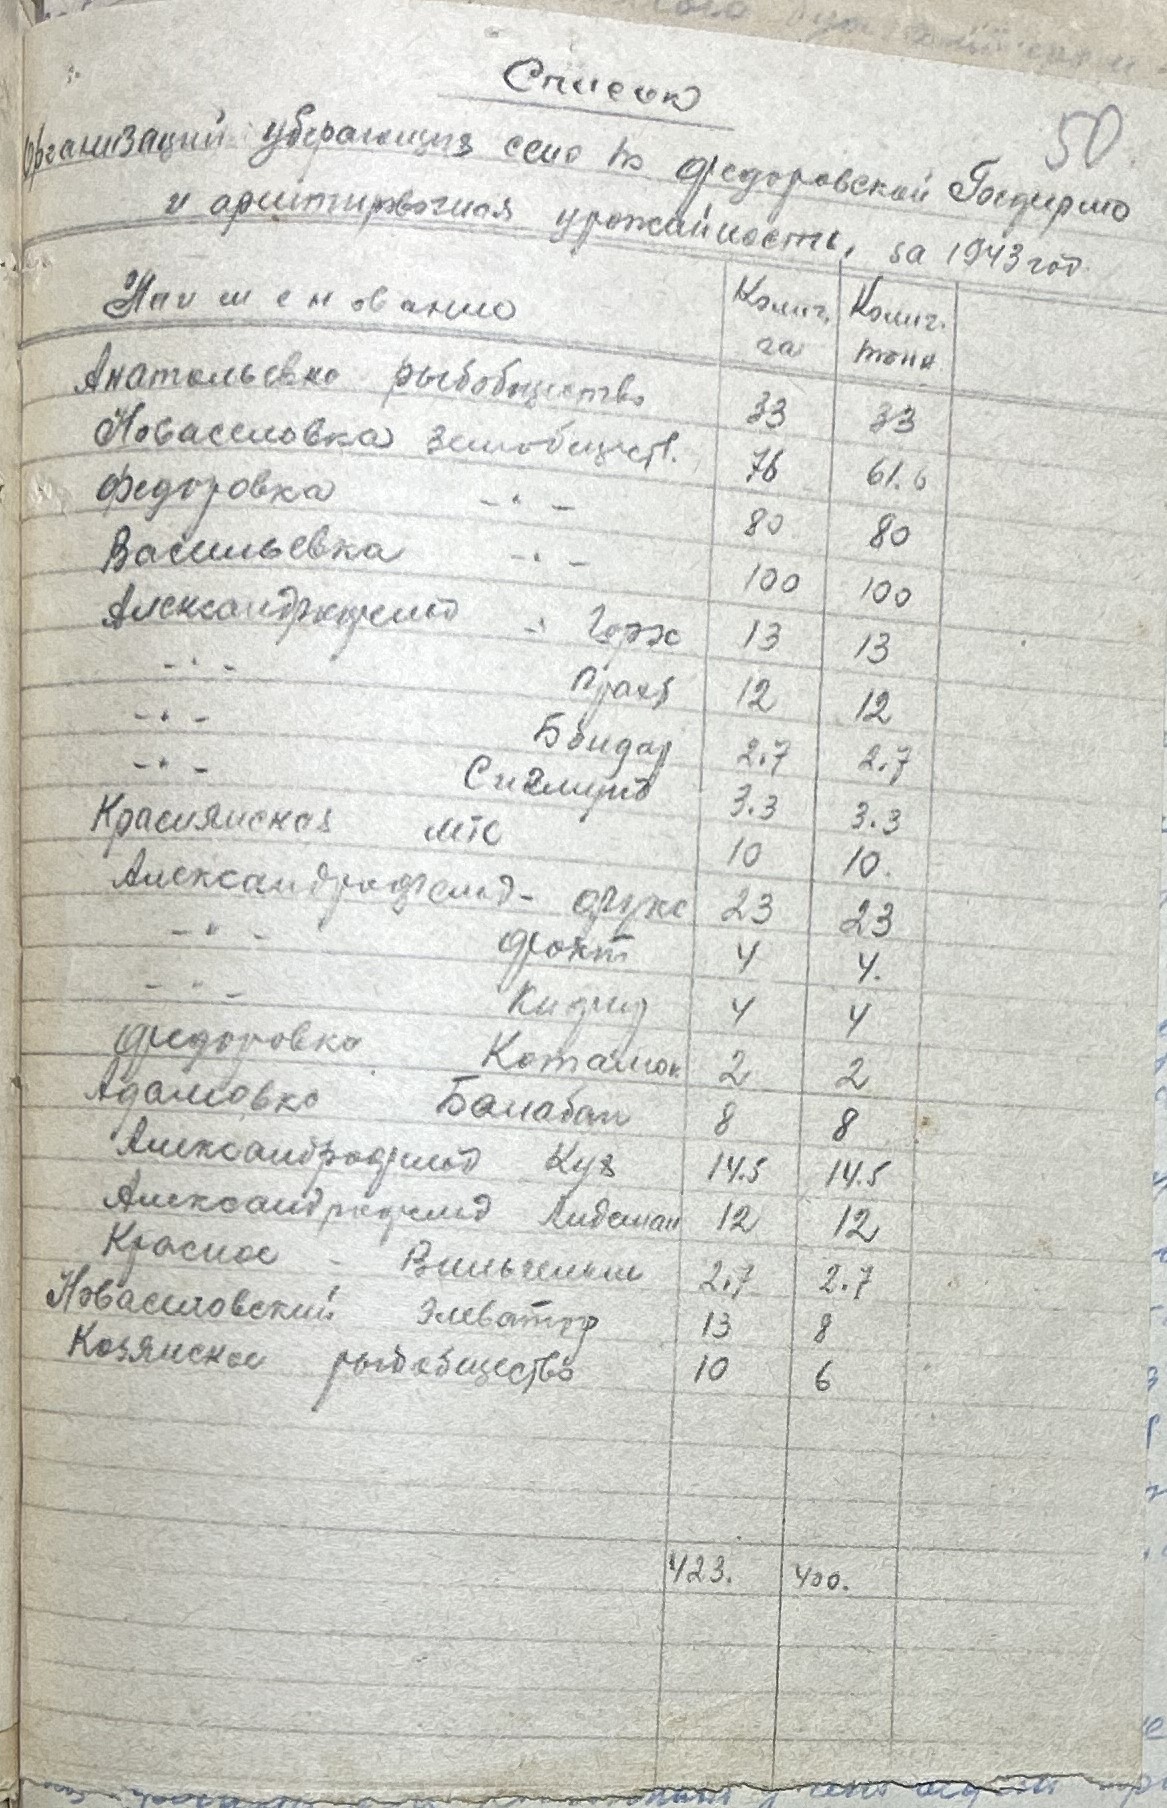 Список
50
Организаций уберающих сено по Федоровской Госферме
и ориитировочная урожайность, за 1943 год
Наименование Колич. га Колич. тонн
Анатольевка рыбобщество 33 33
Новаселовка Земобществ. 76 61.6
Федоровка -"- 80 80
Васильевка -"- 100 100
Александрфельд -"- 13 13
-"- 12 12
-"- Бондар 2.7 2.7
-"- 3.3 3.3
Краснянская МТС 10 10.
Александрофельд - Фукс 23 23
-"- Фохт 4 4.
-"- 4 4
Федоровка 2 2
Адамовка Балабан 8 8
Александрофельд Куз 14.5 14.5
Александрфельд Либеман 12 12
Красное - Вильгельм 2.7 2.7
Новаселовский Элеватор 13 8
Козянское рыбобщество 10 6
423. 400.